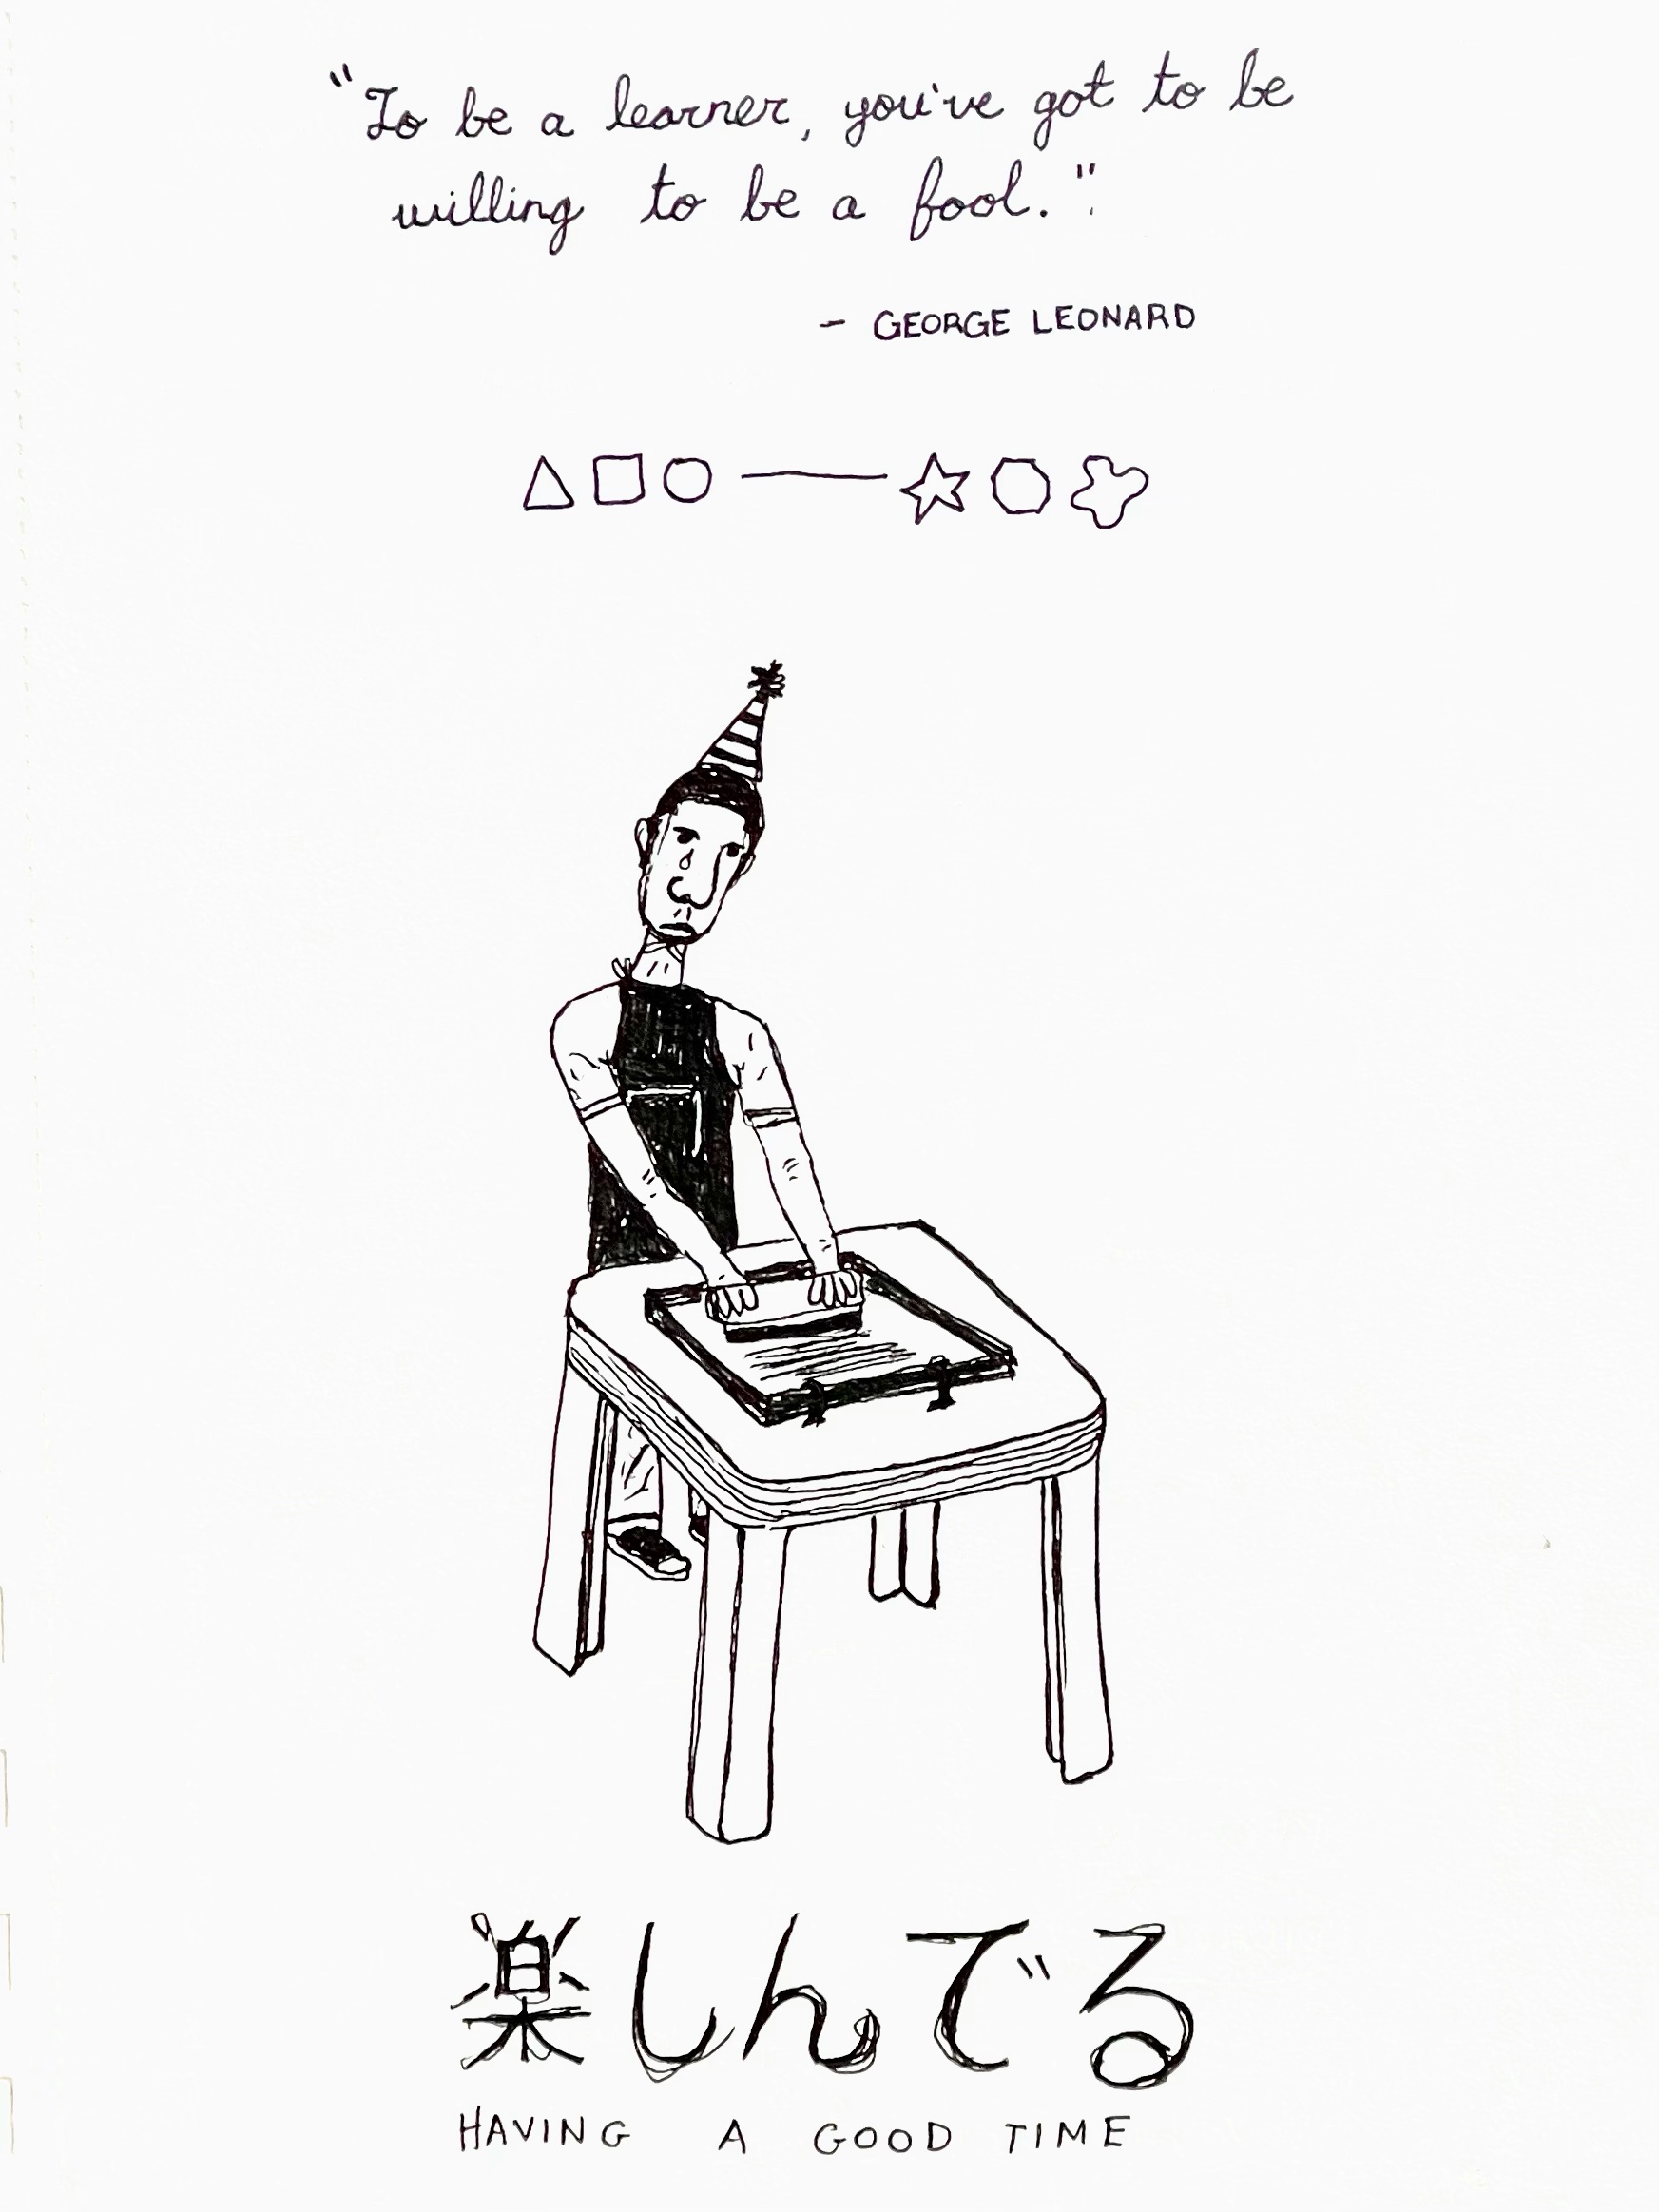 "To be a learner, you've got to be
willing to be a fool."
- GEORGE LEONARD
楽しんでる
HAVING A GOOD TIME